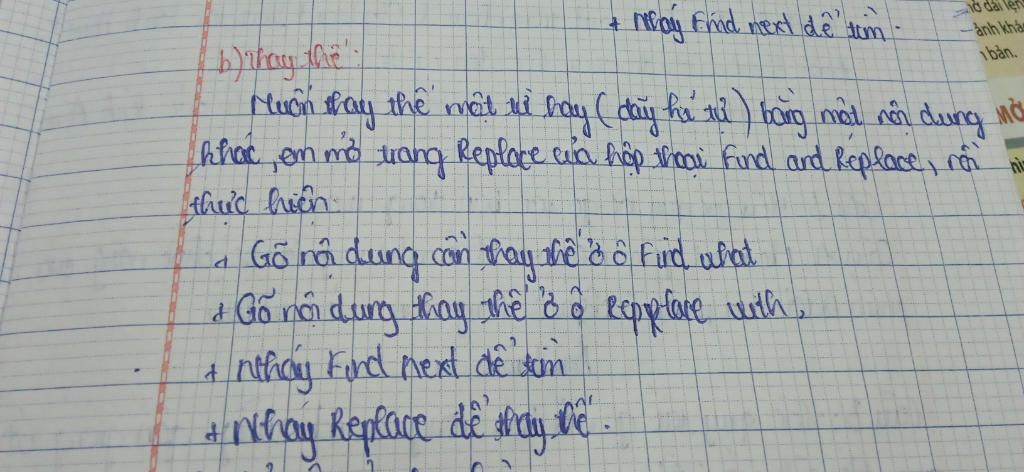 + Nháy Find next để tìm.
b) Thay thế:
Muốn thay thế một từ hay (dãy kí tự) bằng một nội dung
khác, em mở trang Replace của hộp thoại Find and Replace, rồi
thực hiện:
+ Gõ nội dung cần thay thế ở ô Find what
+ Gõ nội dung thay thế ở ô Repplace with,
+ Nháy Find next để tìm
+ Nháy Replace để thay thế.
ành khá
bản.